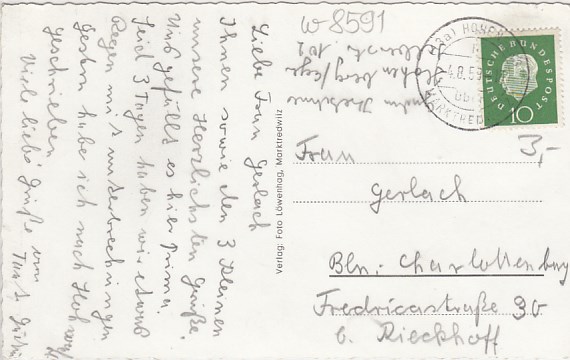 Liebe Frau Gerlach
Ihnen sowie den 3 Kleinen
unsere herzlichsten Grüße.
Uns gefällts es hier prima.
Seid 3 Tagen haben wir etwas
Regen mit unterbrechungen
Gestern habe ich nach
geschrieben
Viele liebe Grüße von
Verlag: Foto Löwenhag, Marktredwitz
W 8591
DEUTSCHE BUNDESPOST
10
3,-
Frau
Gerlach
Bln.- Charlottenburg
Fredriciastraße 30
b. Rieckhoff